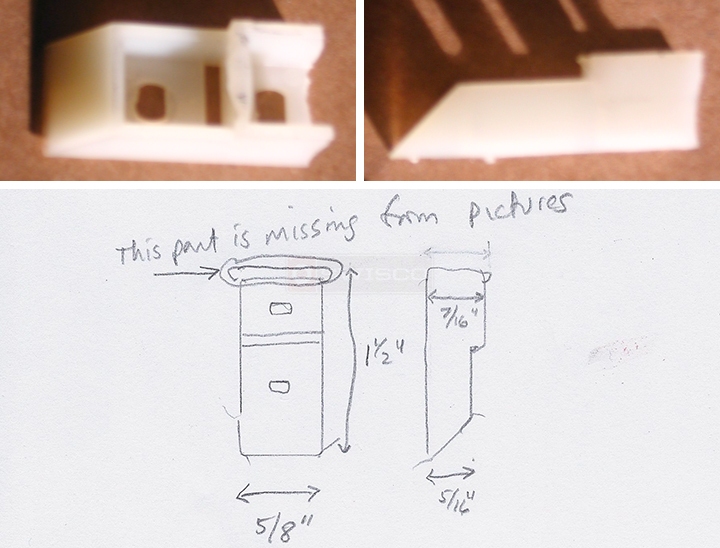 This part is missing from pictures
7/16"
1 1/2"
5/16"
5/8"